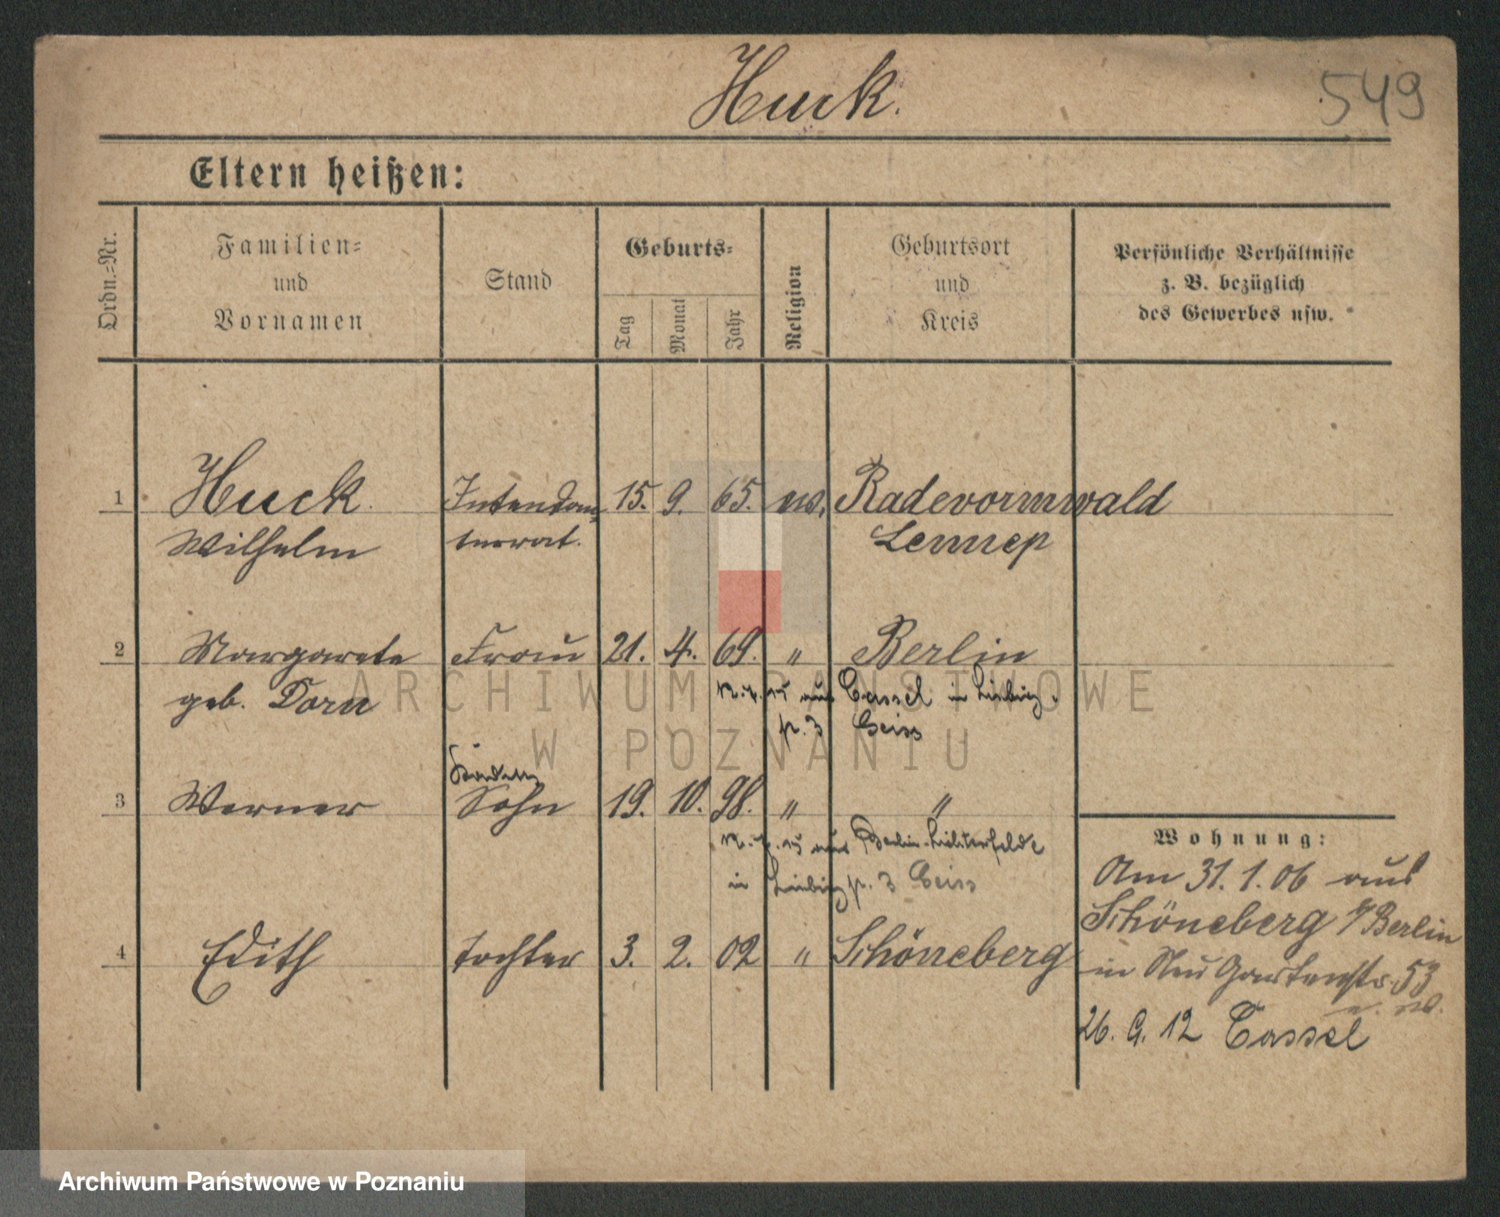 Huck.
549
Eltern heißen:
Ordn.=Nr.
Familien=
und
Vornamen
Stand
Geburts=
Tag
Monat
Jahr
Religion
Geburtsort
und
Kreis
Persönliche Verhältnisse
z. B. bezüglich
des Gewerbes usw.
1 Huck. Intendan 15. 9. 65. ev. Radevormwald
Wilhelm turrat. Lennep
2 Margarete Frau 21. 4. 69. " Berlin
geb. Dorn aus Cassel in
p. 3 Geiss
3 Werner Sohn 19. 10. 98. " "
aus Berlin-Lichterfelde
in p. 3 Geiss
4 Edith Tochter 3. 2. 02 " Schöneberg
Wohnung:
Am 31. 1. 06 aus
Schöneberg b/Berlin
in Neu Gartenstr. 53
26. 9. 12 Cassel
ARCHIWUM PAŃSTWOWE
W POZNANIU
Archiwum Państwowe w Poznaniu